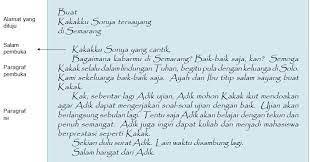 Alamat yang
dituju
Buat
Kakakku Sonya tersayang
di Semarang
Salam
pembuka
Kakakku Sonya yang cantik,
Bagaimana kabarmu di Semarang? Baik-baik saja, kan? Semoga
Paragraf
pembuka
Kakak selalu dalam lindungan Tuhan, begitu pula dengan keluarga di Solo.
Kami sekeluarga baik-baik saja. Ayah dan Ibu titip salam sayang buat
Kakak.
Paragraf
isi
Kak, sebentar lagi Adik ujian, Adik mohon Kakak ikut mendoakan
agar Adik dapat mengerjakan soal-soal ujian dengan baik. Ujian akan
berlangsung sebulan lagi. Tentu saja Adik akan belajar dengan tekun dan
penuh semangat. Adik juga ingin dapat kuliah dan menjadi mahasiswa
berprestasi seperti Kakak.
Sekian dulu surat Adik. Lain waktu disambung lagi.
Salam hangat dari Adik.